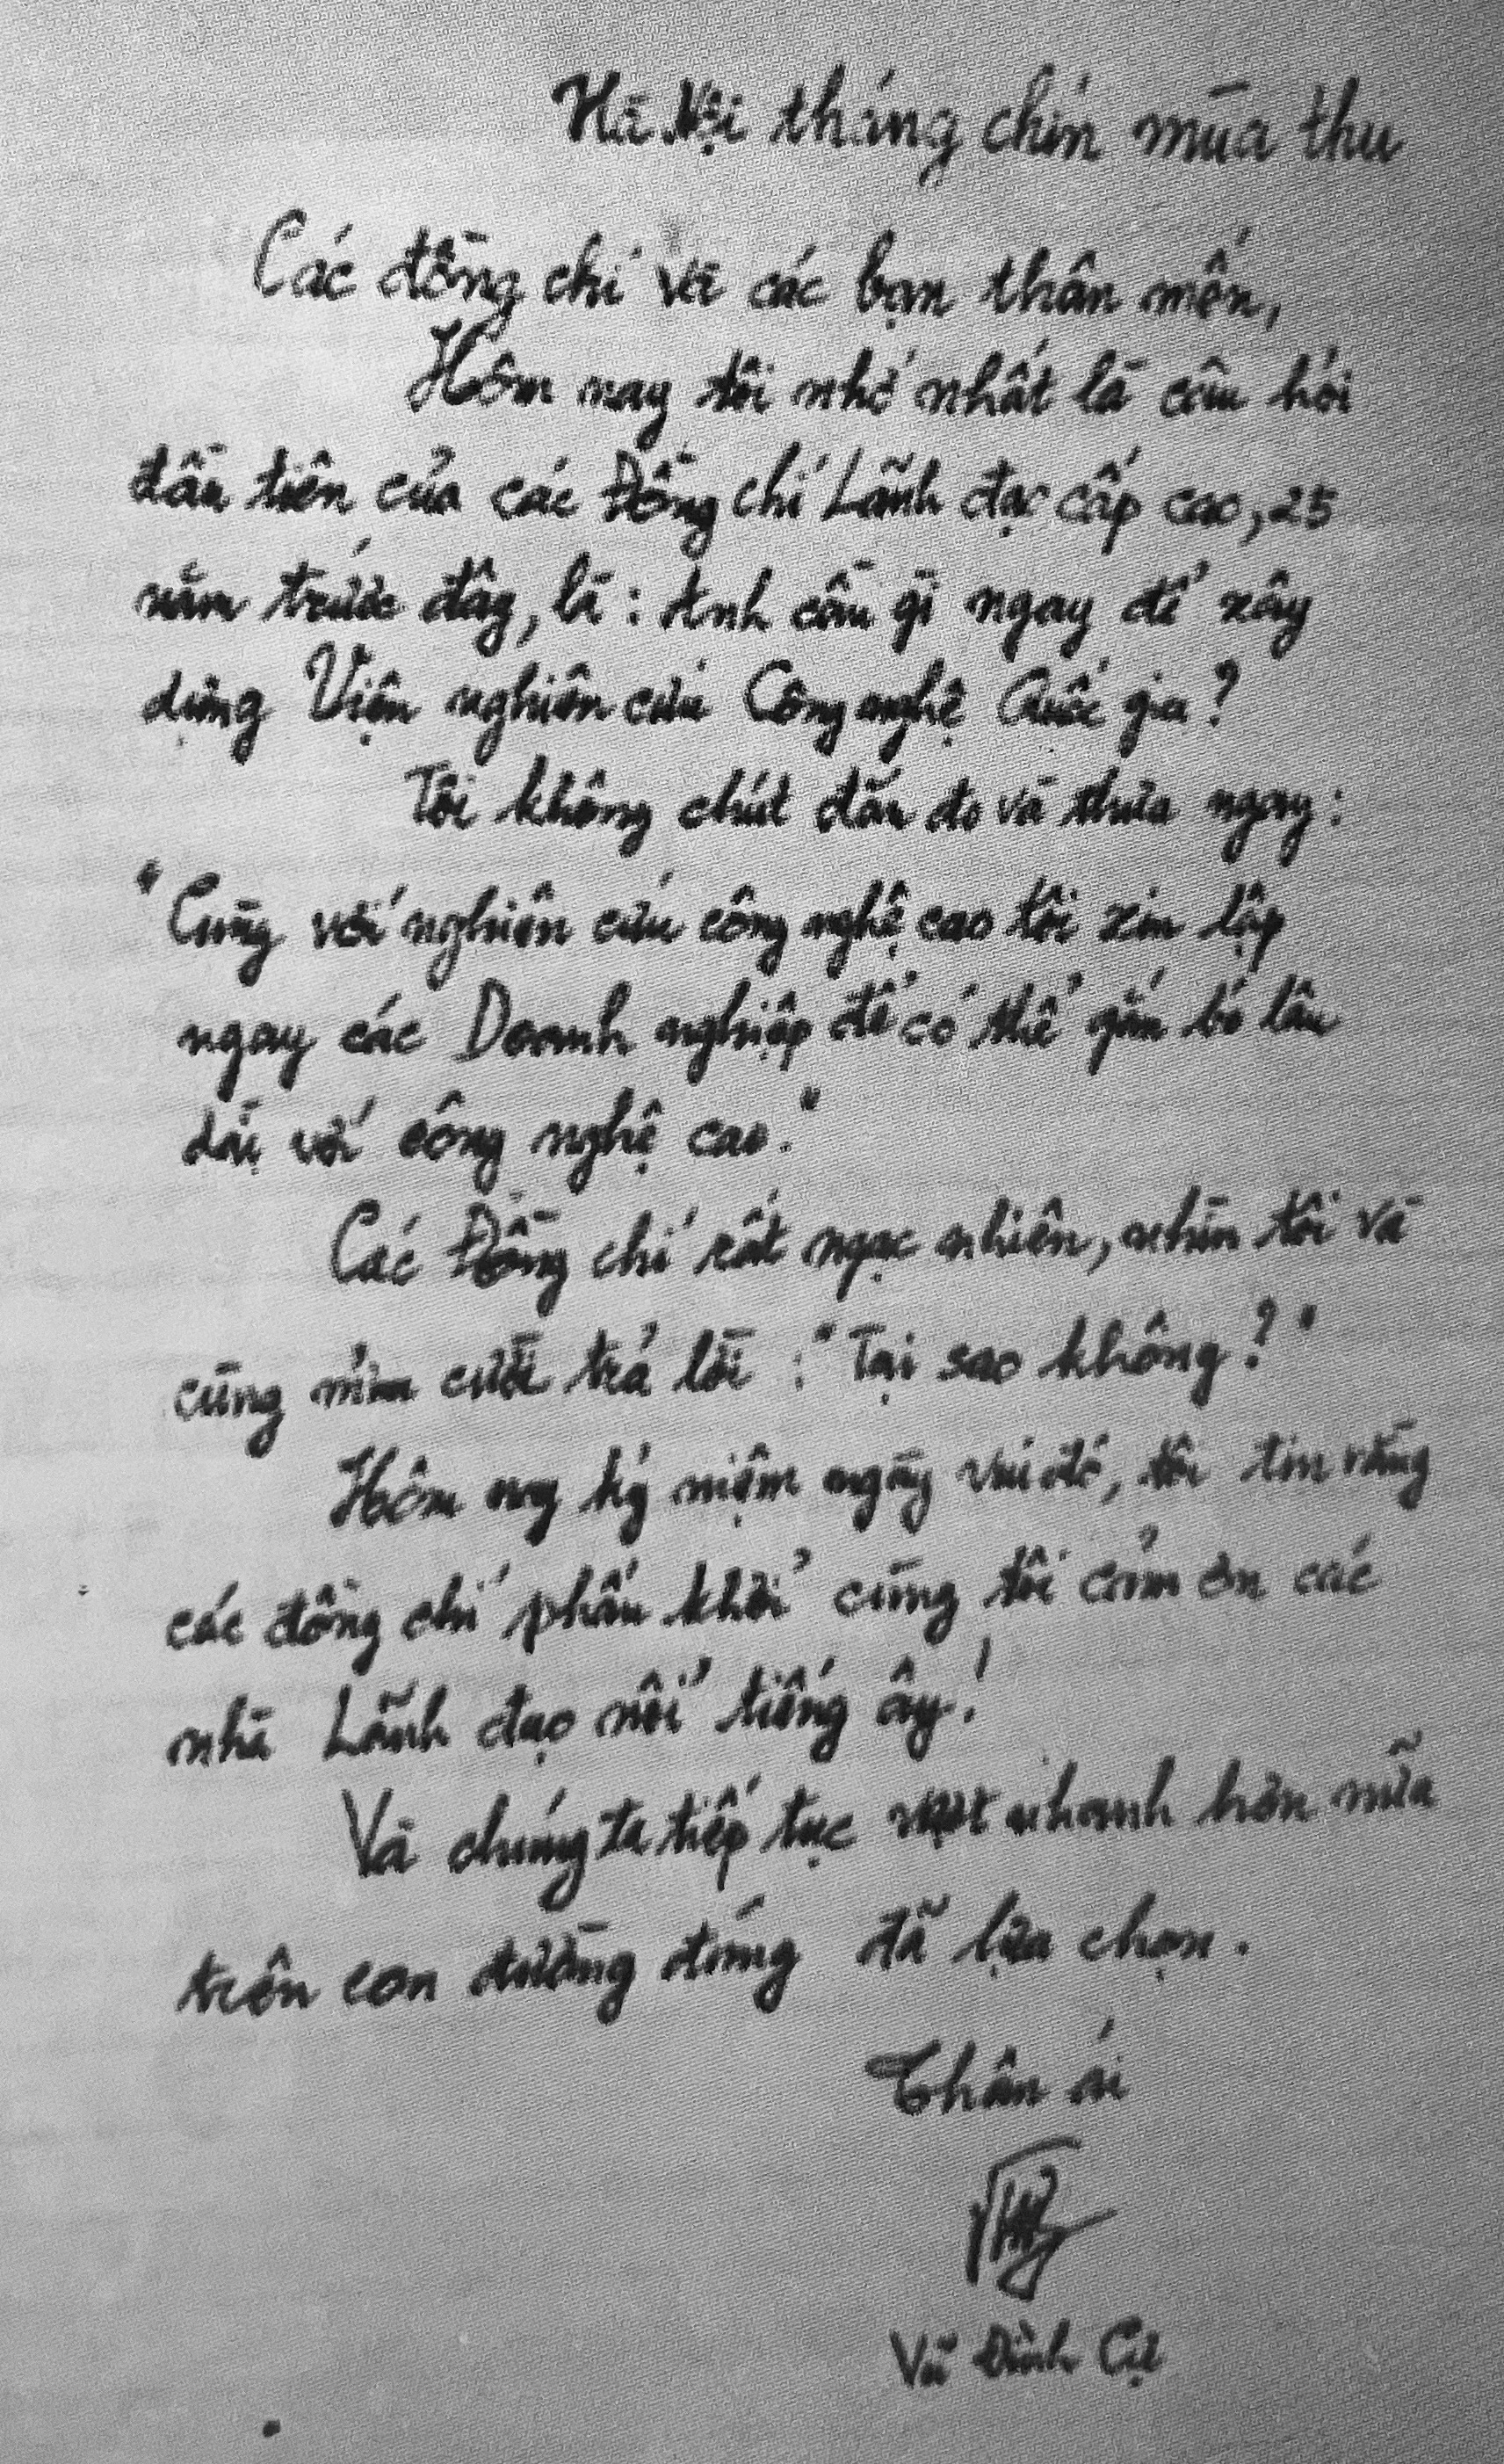 Hà Nội tháng chín mùa thu
Các đồng chí và các bạn thân mến,
Hôm nay tôi nhớ nhất là câu hỏi
đầu tiên của các Đồng chí Lãnh đạo cấp cao, 25
năm trước đây, là : Anh cần gì ngay để xây
dựng Viện nghiên cứu Công nghệ Quốc gia ?
Tôi không chút đắn đo và thưa ngay :
"Cùng với nghiên cứu công nghệ cao tôi xin lập
ngay các Doanh nghiệp để có thể gắn bó lâu
dài với công nghệ cao."
Các Đồng chí rất ngạc nhiên, nhìn tôi và
cùng mỉm cười trả lời : "Tại sao không ?"
Hôm nay kỷ niệm ngày vui đó, tôi tin rằng
các đồng chí phấn khởi cùng tôi cảm ơn các
nhà Lãnh đạo nổi tiếng ấy !
Và chúng ta tiếp tục vượt nhanh hơn nữa
trên con đường đúng đã lựa chọn.
Thân ái
Vũ Đình Cự